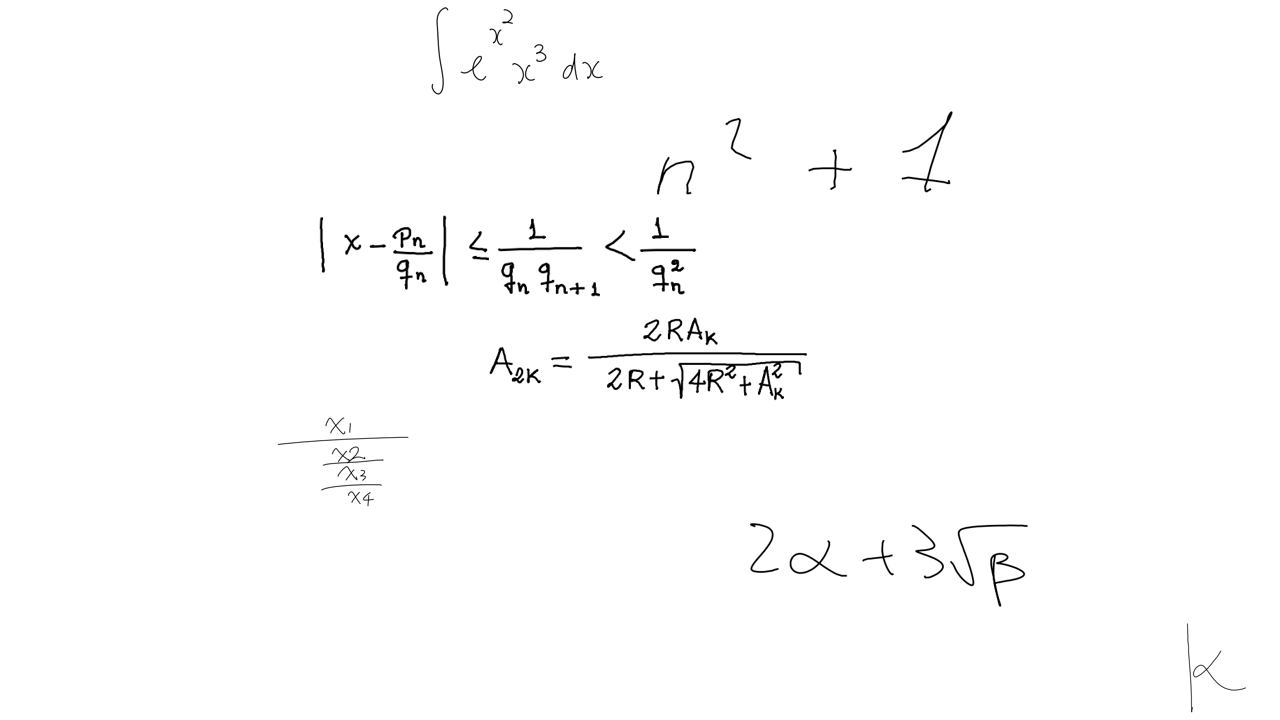 ∫ e^{x^2} x^3 dx
n^2 + 1
| x - \frac{p_n}{q_n} | ≤ \frac{1}{q_n q_{n+1}} < \frac{1}{q_n^2}
A_{2K} = \frac{2RA_K}{2R + \sqrt{4R^2 + A_K^2}}
\frac{x_1}{\frac{\frac{x_2}{x_3}}{x_4}}
2α + 3\sqrt{β}
k